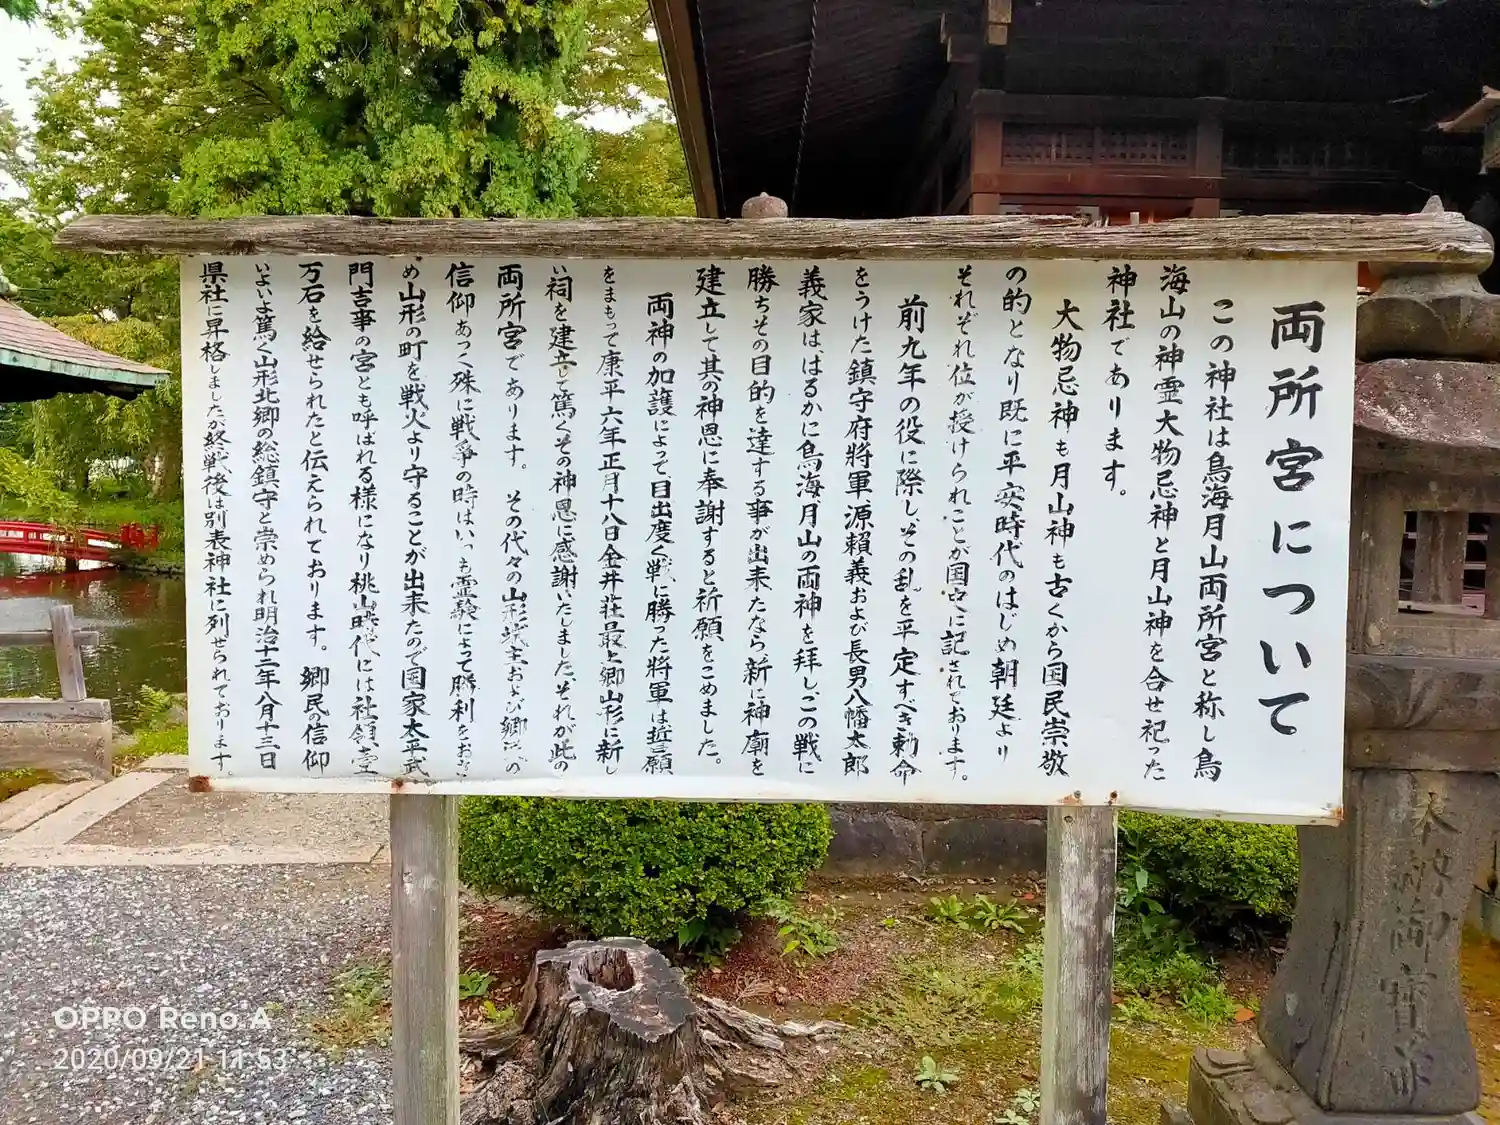 両所宮について
この神社は鳥海月山両所宮と称し鳥
海山の神霊大物忌神と月山神を合せ祀った
神社であります。
大物忌神も月山神も古くから国民崇敬
の的となり既に平安時代のはじめ朝廷より
それぞれ位が授けられことが国史に記されております。
前九年の役に際しその乱を平定すべき勅命
をうけた鎮守府将軍源頼義および長男八幡太郎
義家ははるかに鳥海月山の両神を拝しこの戦に
勝ちその目的を達する事が出来たなら新に神廟を
建立して其の神恩に奉謝すると祈願をこめました。
両神の加護によって目出度く戦に勝った将軍は誓願
をまもって康平六年正月十八日金井荘最上郷山形に新し
い祠を建立して篤くその神恩に感謝いたしました。それが此の
両所宮であります。その代々の山形城主および郷民の
信仰あつく殊に戦争の時はいつも霊験によって勝利をおさ
め山形の町を戦火より守ることが出来たので国家太平武
門吉事の宮とも呼ばれる様になり桃山時代には社領壹
万石を給せられたと伝えられております。郷民の信仰
いよいよ篤く山形北郷の総鎮守と崇められ明治十二年八月十三日
県社に昇格しましたが終戦後は別表神社に列せられております。
奉納御寶前
OPPO Reno A
2020/09/21 11:53